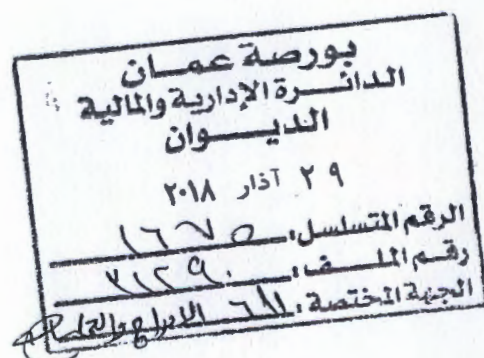 بورصة عمان
الدائرة الإدارية والمالية
الديوان
٢٩ آذار ٢٠١٨
الرقم المتسلسل: ١٦٧٥
رقم الملف: ٣١٢٩٠
الجهة المختصة: الإدراج